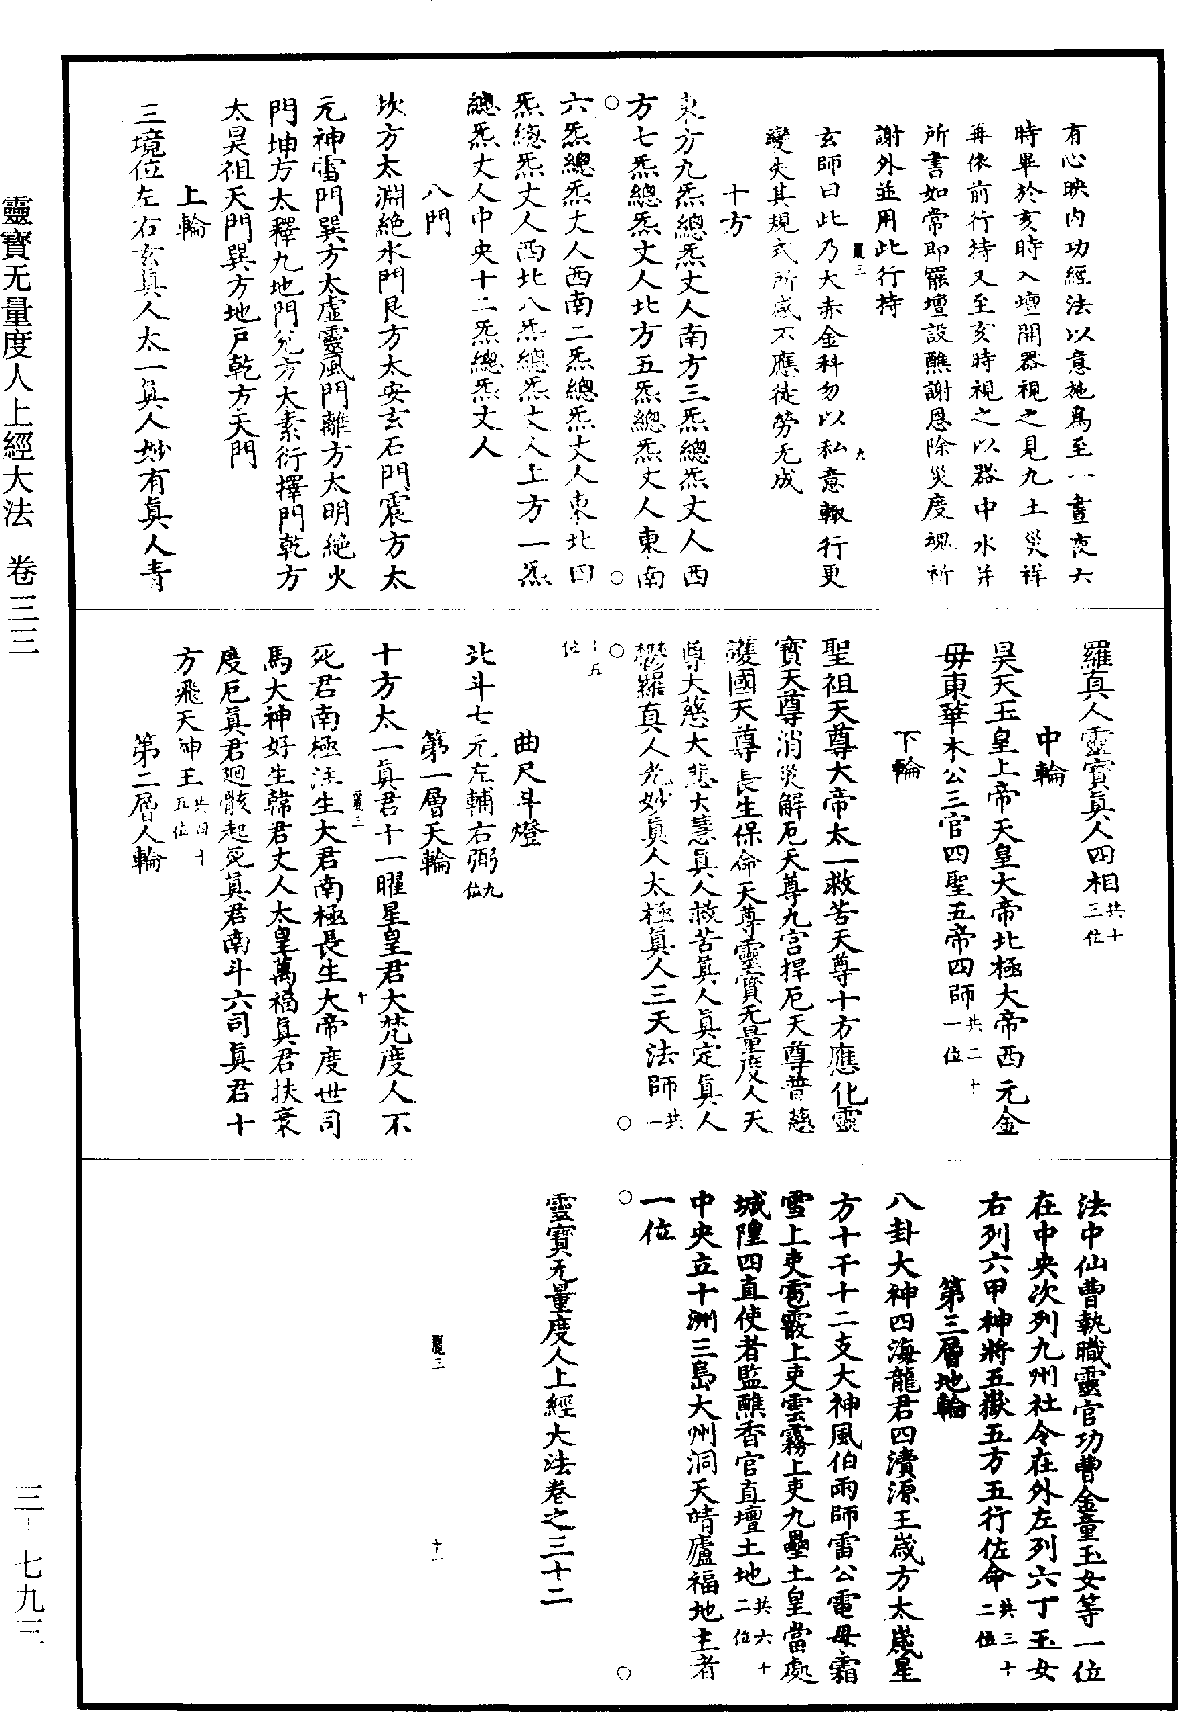 有心映內功經法以意施爲至一晝夜六
時畢於亥時入壇開器視之見九土災祥
再依前行持又至亥時視之以器中水并
所書如常即罷壇設醮謝恩除災度魂祈
謝外並用此行持
玄師曰此乃大赤金科勿以私意輙行更
變失其規式所感不應徒勞无成
十方
東方九炁總炁丈人南方三炁總炁丈人西
方七炁總炁丈人北方五炁總炁丈人東南
六炁總炁丈人西南二炁總炁丈人東北四
炁總炁丈人西北八炁總炁丈人上方一炁
總炁丈人中央十二炁總炁丈人
八門
坎方太淵絶水門艮方太安玄石門震方太
元神雷門巽方太虛靈風門離方太明絶火
門坤方太釋九地門兌方大素衍擇門乾方
太昊祖天門巽方地戸乾方天門
上輪
三境位左右玄真人太一眞人妙有眞人青
羅真人靈寳眞人四相共十三位
中輪
昊天玉皇上帝天皇大帝北極大帝西元金
毋東華木公三官四聖五帝四師共二十一位
下輪
聖祖天尊大帝太一救苦天尊十方應化靈
寳天尊消災解厄天尊九宫捍厄天尊普慈
護國天尊長生保命天尊靈寳无量度人天
尊大慈大悲大慧真人救苦真人眞定眞人
鬱羅真人光妙眞人太極眞人三天法師共一
十五位
曲尺斗燈
北斗七元左輔右弼九位
第一層天輪
十方太一眞君十一曜星皇君大梵度人不
死君南極注生大君南極長生大帝度世司
馬大神好生韓君丈人太皇萬福眞君扶衰
度厄眞君廻骸起死眞君南斗六司眞君十
方飛天神王共四十五位
第二層人輪
法中仙曹執職靈官功曹金童玉女等一位
在中央次列九州社令在外左列六丁玉女
右列六甲神將五嶽五方五行佐命共三十二位
第三層地輪
八卦大神四海龍君四瀆源王歲方太歲星
方十干十二支大神風伯雨師雷公電母霜
雪上吏雹霰上吏雲霧上吏九壘土皇當處
城隍四直使者監醮香官直壇土地共六十二位
中央立十洲三島大州洞天靖廬福地主者
一位
靈寳无量度人上經大法卷之三十二
靈寶无量度人上經大法　卷三二
三-七九三